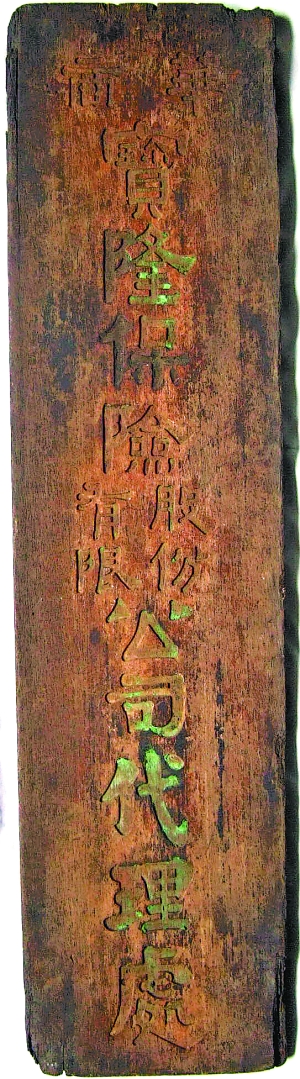 華商
寶隆保險
股份
有限
公司代理處